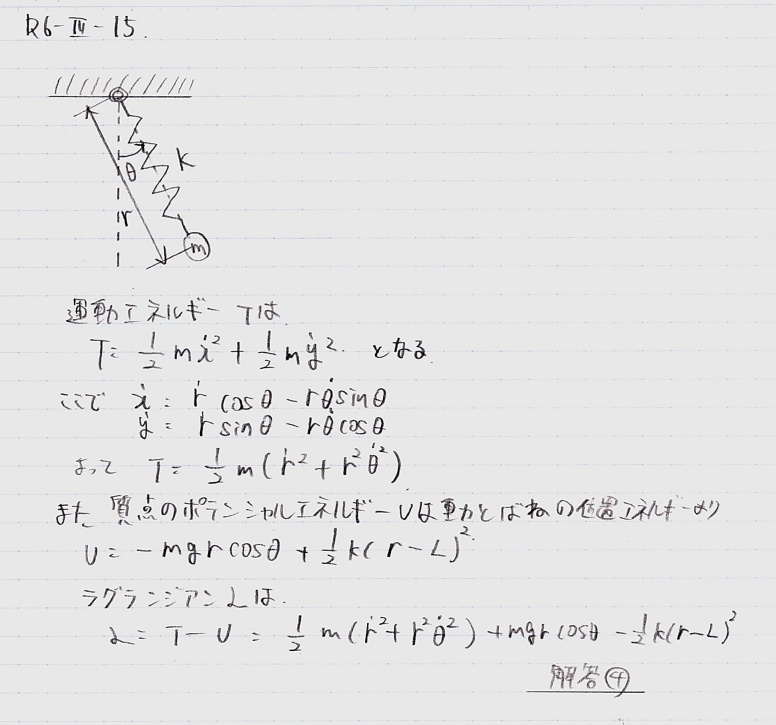 R6-Ⅲ-15.
θ
k
r
m
運動エネルギー Tは
T = 1/2 mẋ² + 1/2 mẏ². となる
ここで ẋ = ṙ cosθ - rθ̇sinθ
ẏ = ṙ sinθ - rθ̇cosθ
よって T = 1/2 m(ṙ² + r²θ̇²)
また 質点のポテンシャルエネルギーUは重力とばねの位置エネルギーより
U = -mgr cosθ + 1/2 k(r-L)².
ラグランジアンLは.
L = T-U = 1/2 m(ṙ²+r²θ̇²) +mgr cosθ -1/2 k(r-L)²
解答④